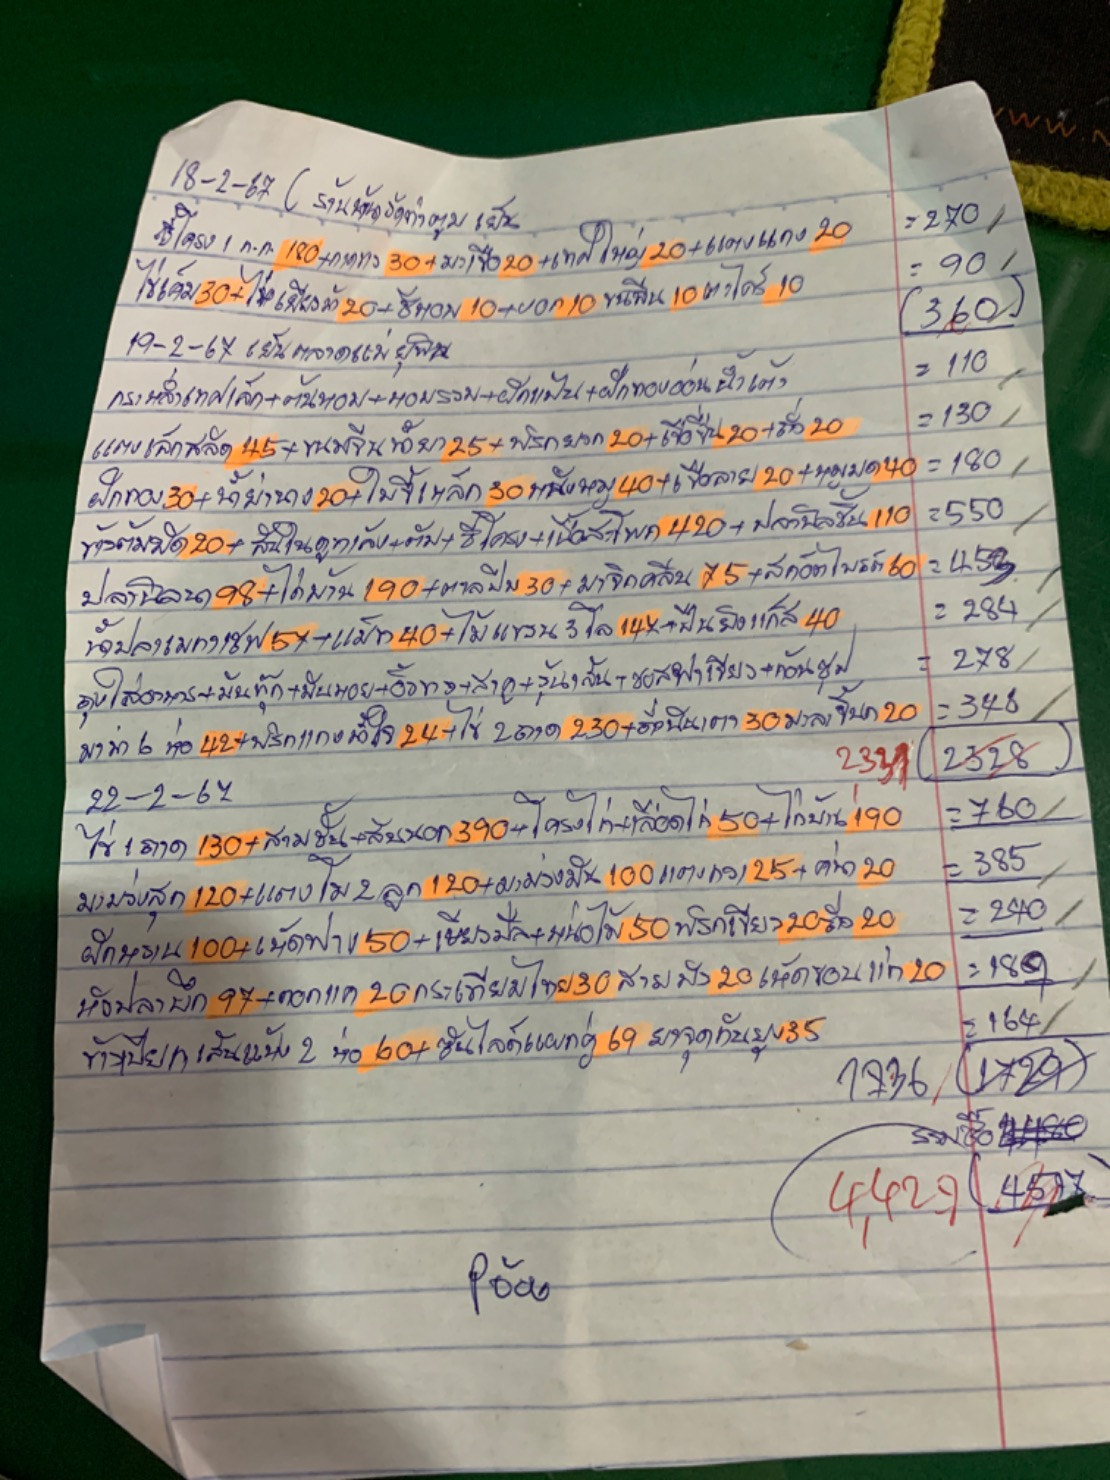 18-2-67 ( ร้านนัดวัดท่าตูม เย็น
ซี่โครง 1 ก.ก 180+กวางตุ้ง 30+มะเขือ 20+เทศใหญ่ 20+แตงแกง 20 = 270
ไข่เค็ม 30+ไข่เยี่ยวม้า 20+ชีหอม 10+บอก 10 ขมมิ้น 10 ตะไคร้ 10 = 90
(360)
19-2-67 เย็นตลาดแม่ยุพิน
กะหล่ำเทศเล็ก+ต้นหอม+หอมรวม+ฝักแฟ้น+ฝักทองอ่อนน้ำเต้า = 110
แตงเล็กสลัด 45+ขนมจีนน้ำยา 25+พริกยวก 20+เขือขื่น 20+ถั่ว 20 = 130
ฝักทอง 30+น้ำย่านาง 20+ใบขี้เหล็ก 30 หนังหมู 40+เขือลาย 20+หมูบด 40 = 180
ข้าวต้มมัด 20+สันในดูกเล้ง+ตับ+ซี่โครง+เนื้อสะโพก 420+ปลานิลชิ้น 110 = 550
ปลานิล 98+ไก่บ้าน 190+ตาลปีบ 30+มาจิกคลีน 75+สก๊อตไบรต์ 60 = 453
น้ำปลาเมกาเชฟ 57+แม็ก 40+ไม้แขวน 3 โล 147+ปืนยิงแก๊ส 40 = 284
ถุงใส่อาหาร+มันทุ๊ก+มันหอย+งิ้วขาว+สาคู+วุ้นเส้น+ซอสฝาเขียว+ก้อนซุป = 278
มาม่า 6 ห่อ 42+พริกแกงน้ำใจ 24+ไข่ 2 ถาด 230+ 30 20 = 348
2331 (2328)
22-2-67
ไข่ 1 ถาด 130+สามชั้น+สันนอก 390+โครงไก่+เลือดไก่ 50+ไก่บ้าน 190 = 760
มะม่วงสุก 120+แตงโม 2 ลูก 120+มะม่วงมัน 100 แตงกวา 25+คะน้า 20 = 385
ฝักหวาน 100+เห็ดฟาง 50+เขียวมือ+หน่อไม้ 50 พริกเขียว 20 ถั่ว 20 = 240
หัวปลาบึก 97+ดอกแค 20 กระเทียมไทย 30 สายบัว 20 เห็ดขอนแก่ 20 = 189
ข้าวเปียกเส้นแป้ง 2 ห่อ 60+ซันไลต์แพกคู่ 69 ยาจุดกันยุง 35 = 164
1736 (1729)
รวมซื้อ
4,429 (4517)
ป้อน